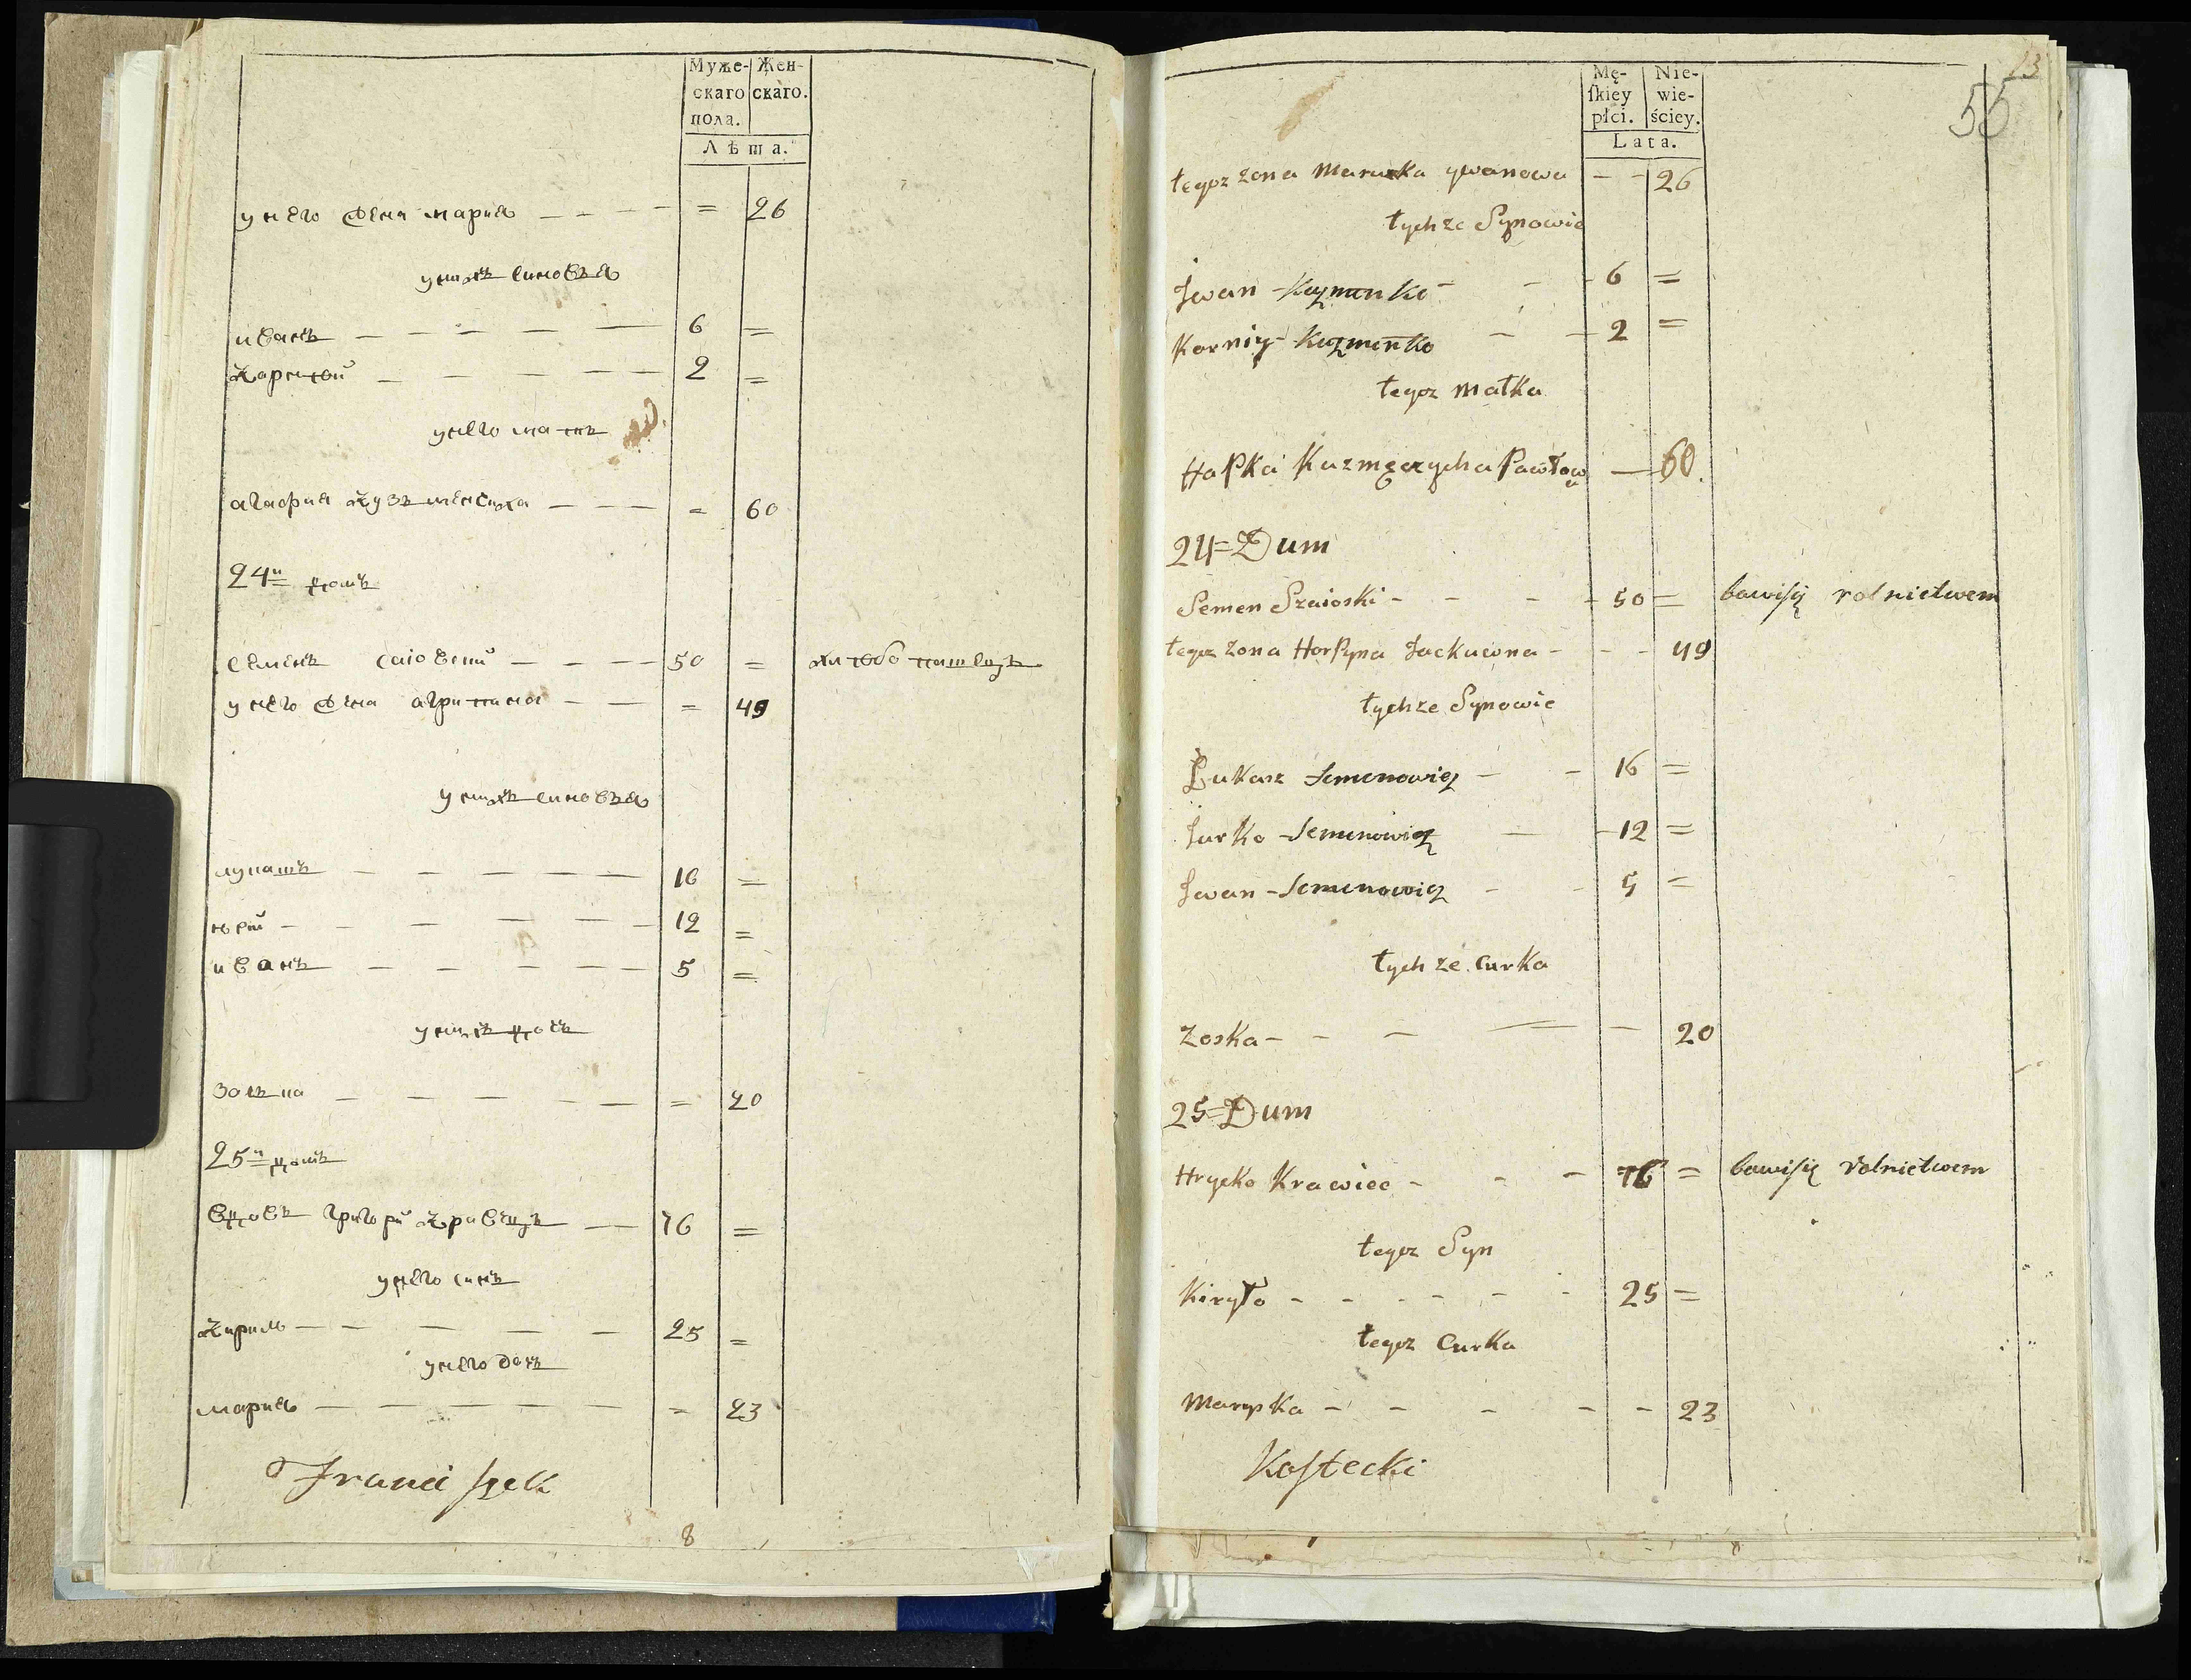 Муже-
скаго
пола.
Жен-
скаго.
Лѣта.
у него жена мария 26
у нихъ синовья
иванъ 6 =
корнѣй 2 =
у него мать
агафия кузьменчиха = 60
24й домъ
семенъ саiовскій 50 = хлѣбопашецъ
у него жена агрипина = 49
у нихъ синовья
лукашъ 16 =
юрій 12 =
иванъ 5 =
у нихъ дочь
зоська = 20
25й домъ
вдовъ григорій кравецъ 76 =
у него синъ
кирило 25 =
у него дочь
мария = 23
Franciszek
8
13
55
Mę-
skiey
płci.
Nie-
wie-
ściey.
Lata.
tegoz zona Maruska ywanowa 26
tychze Synowie
Jwan Kuzmenko 6 =
Korniy Kuzmenko 2 =
tegoz Matka
Hapka Kuzmęczycha Pawłowa 60.
24=Dum
Semen Szaioski 50 = bawisię rolnictwem
tegoz zona Horpyna Jackuwna 49
tychze Synowie
Łukasz Semenowicz 16 =
Jurko Semenowicz 12 =
Jwan Semenowicz 5 =
tychze Curka
Zoska 20
25=Dum
Hrycko Krawiec 76 = bawisię rolnictwem
tegoz Syn
Kiryło 25 =
tegoz Curka
Marypka 23
Kostecki